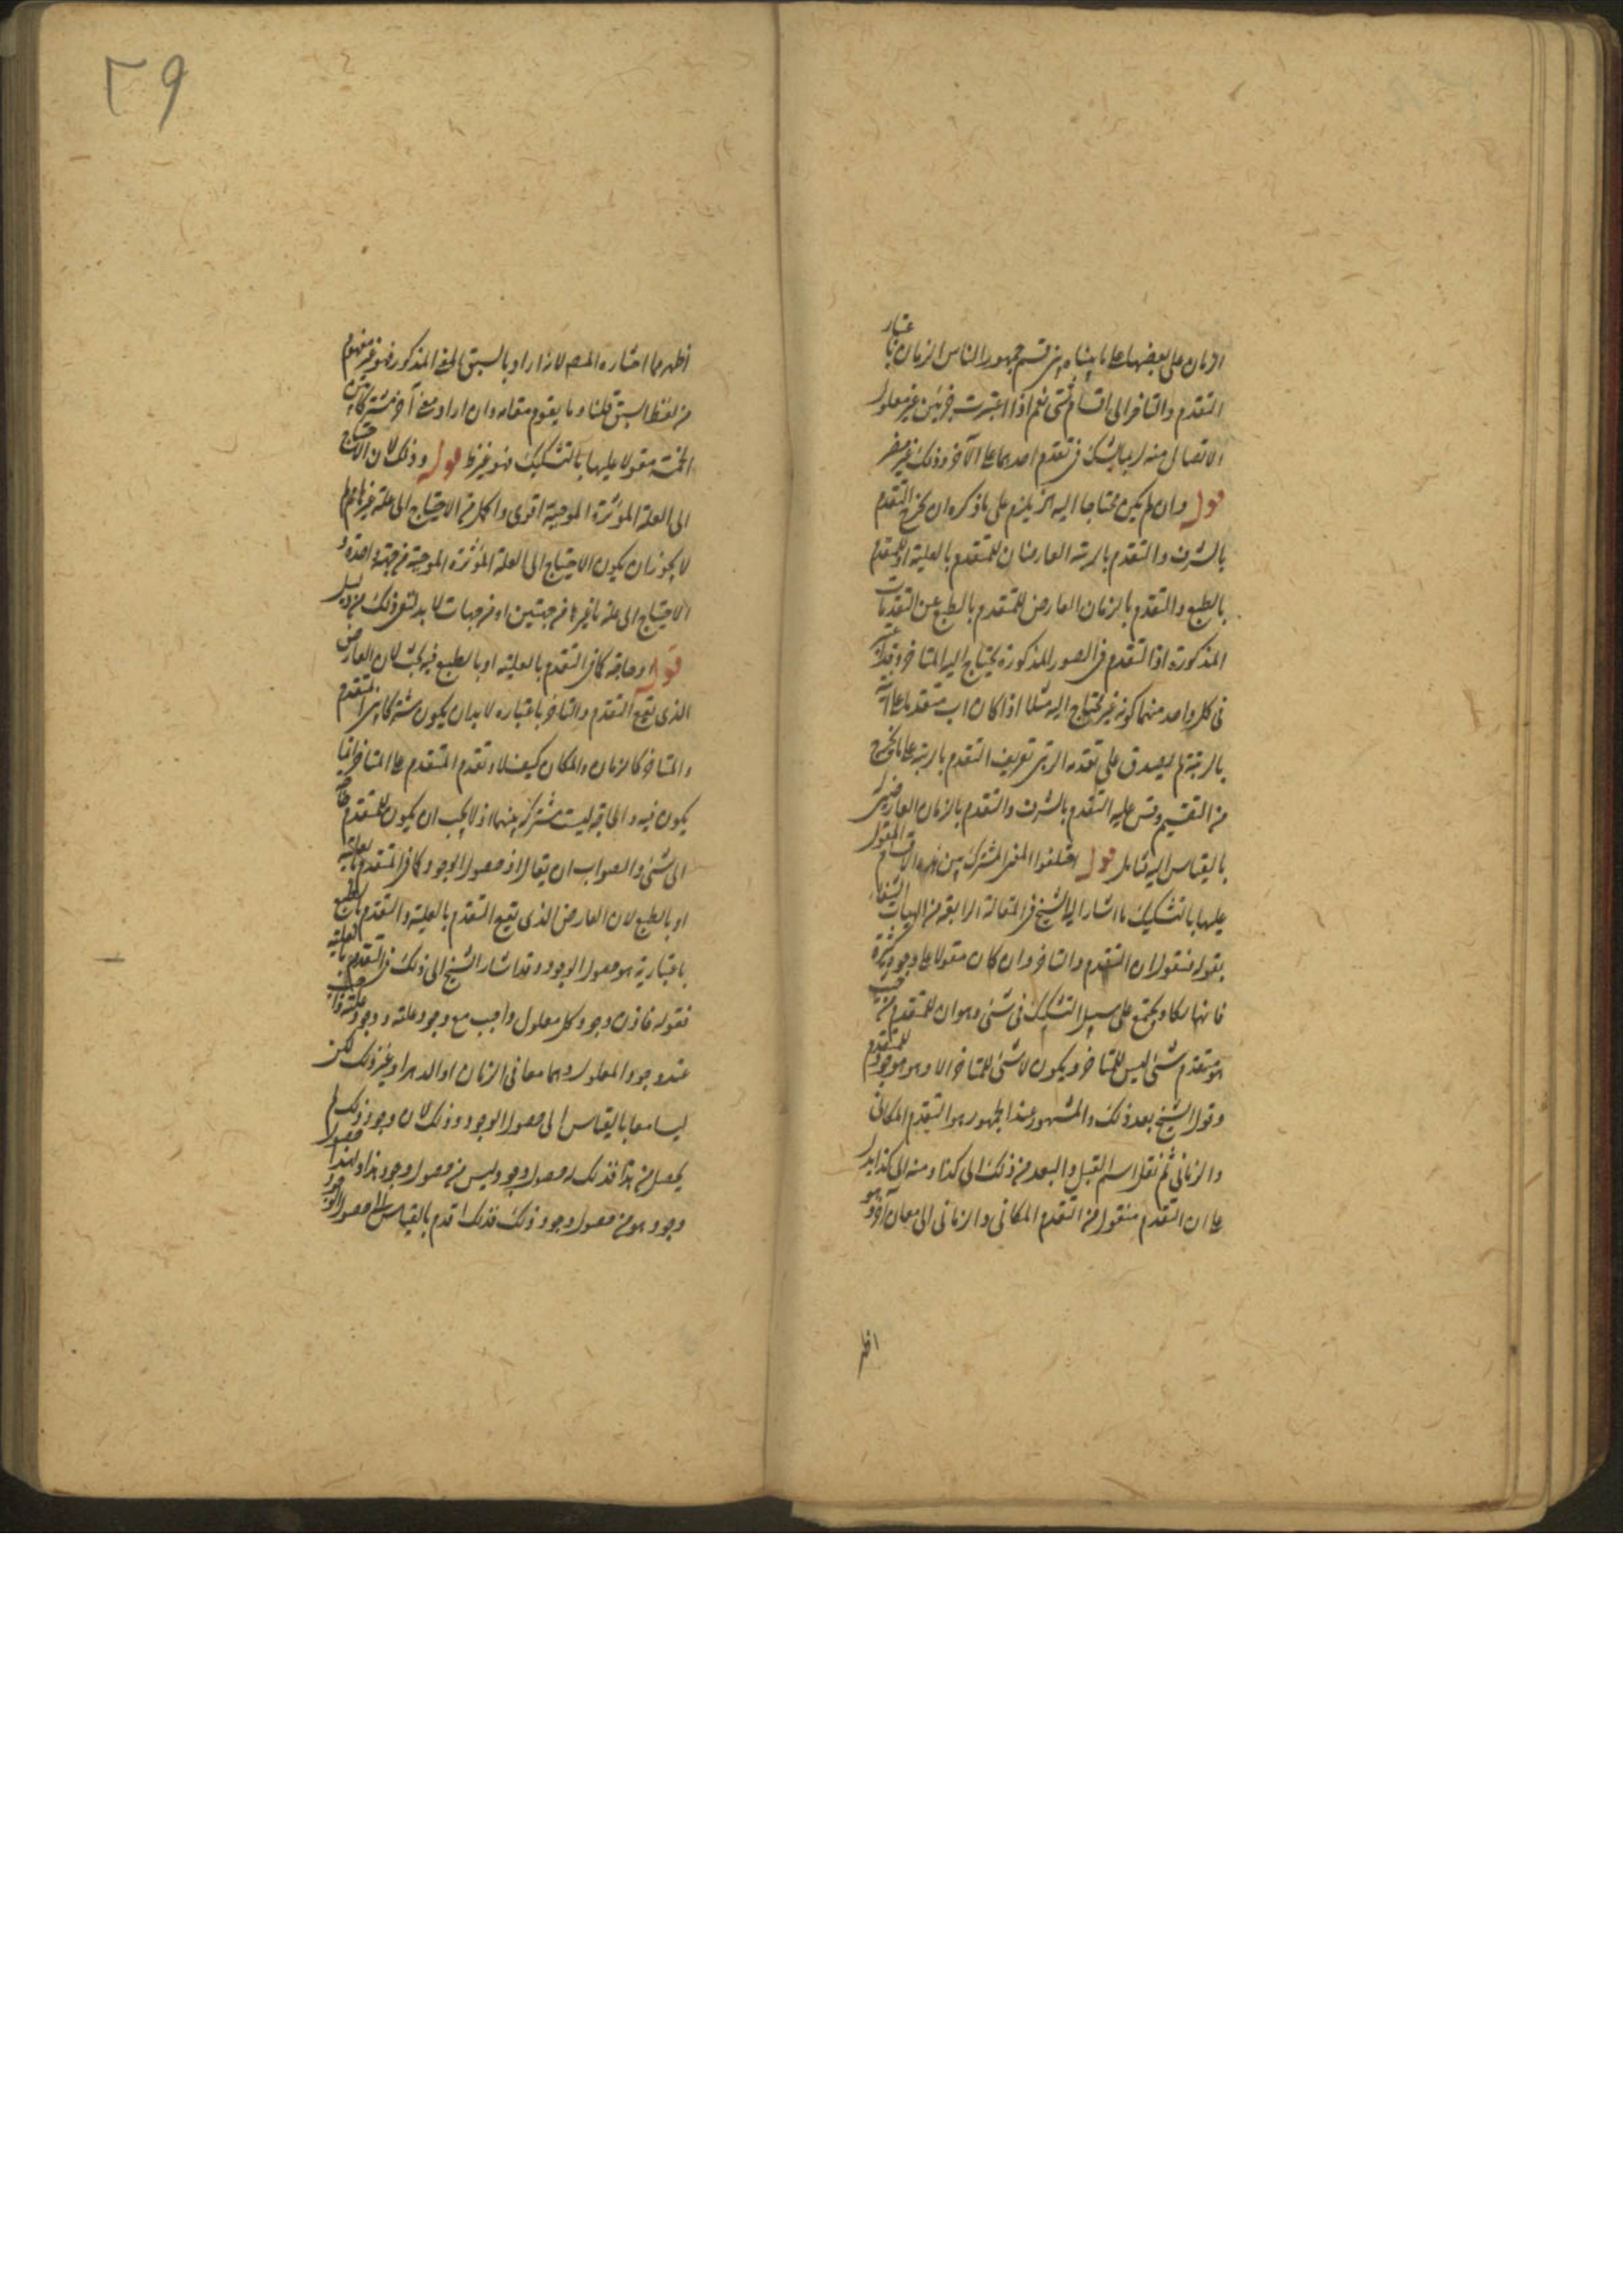 الزمان على بعضها على ما بيناه قسم جمهور الناس الزمان باعتبار
التقدم والتاخر الى اقسام شتى نعم اذا اعتبرت جزئين غير معلول
الاتصال منه ربما يشك في تقدم احدهما على الآخر وذلك غير مضر
قوله وان لم يكن محتاجا اليه يلزم على ما ذكره ان يخرج التقدم
بالشرف والتقدم بالرتبة العارضان للمتقدم بالعلية او المتقدم
بالطبع والتقدم بالزمان العارض للمتقدم بالطبع عن التقدمات
المذكورة اذ التقدم في الصور المذكورة يحتاج اليه المتاخر وقد
في كل واحد منهما كونه غير محتاج اليه مثلا اذا كان اب متقدما على
بالرتبة لم يصدق على تقدمه الرتبي تعريف التقدم بالرتبة على ما يخرج
من التقسيم وقس عليه التقدم بالشرف والتقدم بالزمان العارضين
بالقياس اليه فتامل قوله اختلفوا المعنى المشترك بين هذه الاقسام المقول
عليها بالتشكيك ما اشار اليه الشيخ في المقالة الرابعة من الهيات الشفاء
بقوله فنقول ان التقدم والتاخر وان كان مقولا على وجوه كثيرة
فانها يكاد يجتمع على سبيل التشكيك في شئ وهو ان للمتقدم من حيث
هو متقدم شئ ليس للمتاخر ويكون لا شئ للمتاخر الا وهو موجود للمتقدم
وقول الشيخ بعد ذلك والمشهور عند الجمهور هو التقدم المكاني
والزماني ثم نقل اسم القبل والبعد من ذلك الى كذا ومنه الى كذا يدل
على ان التقدم منقول من التقدم المكاني والزماني الى معان آخر وهو
اظهر
٢٩
اظهر مما اختاره المصـ لانه اراد بالسبق المعنى المذكور فهو غير مفهوم
من لفظ السبق قلنا وما يقوم مقامه وان اراد معنى آخر مشتركا بين
الخمسة مقولا عليها بالتشكيك فهو غير ظ قوله وذلك لان الاحتياج
الى العلة المؤثرة الموجبة اقوى واكمل من الاحتياج الى علة غيرها لم
لا يجوز ان يكون الاحتياج الى العلة المؤثرة الموجبة من جهة واحدة و
الاحتياج الى علة ما غيرها من جهتين او من جهات لا بد لنفي ذلك من دليل
قوله او حاجة كما في التقدم بالعلية او بالطبع فيه بحث لان العارض
الذي يقع التقدم والتاخر باعتباره لا بد ان يكون مشتركا بين المتقدم
والمتاخر كالزمان والمكان كيف لا وتقدم المتقدم على المتاخر انما
يكون فيه والحاجة ليست مشتركة بينهما اذ لا يجب ان يكون للمتقدم حاجة
الى شئ والصواب ان يقال او حصول الوجود كما في المتقدم بالعلية
او بالطبع لان العارض الذي يقع التقدم بالعلية والتقدم بالطبع
باعتباريته هو حصول الوجود وقد اشار الشيخ الى ذلك في التقدم بالعلية
فقوله فاذن وجود كل معلول واجب مع وجود علته ووجود علته واجب
عند وجود المعلول وهما معا في الزمان او الدهر او غير ذلك لكن
ليسا معا بالقياس الى حصول الوجود وذلك لان وجود ذلك لم
يحصل من هذا فذلك له حصول وجود ليس من حصول وجود هذا ولهذا حصول
وجود هو من حصول وجود ذلك فذلك اقدم بالقياس الى حصول الوجود